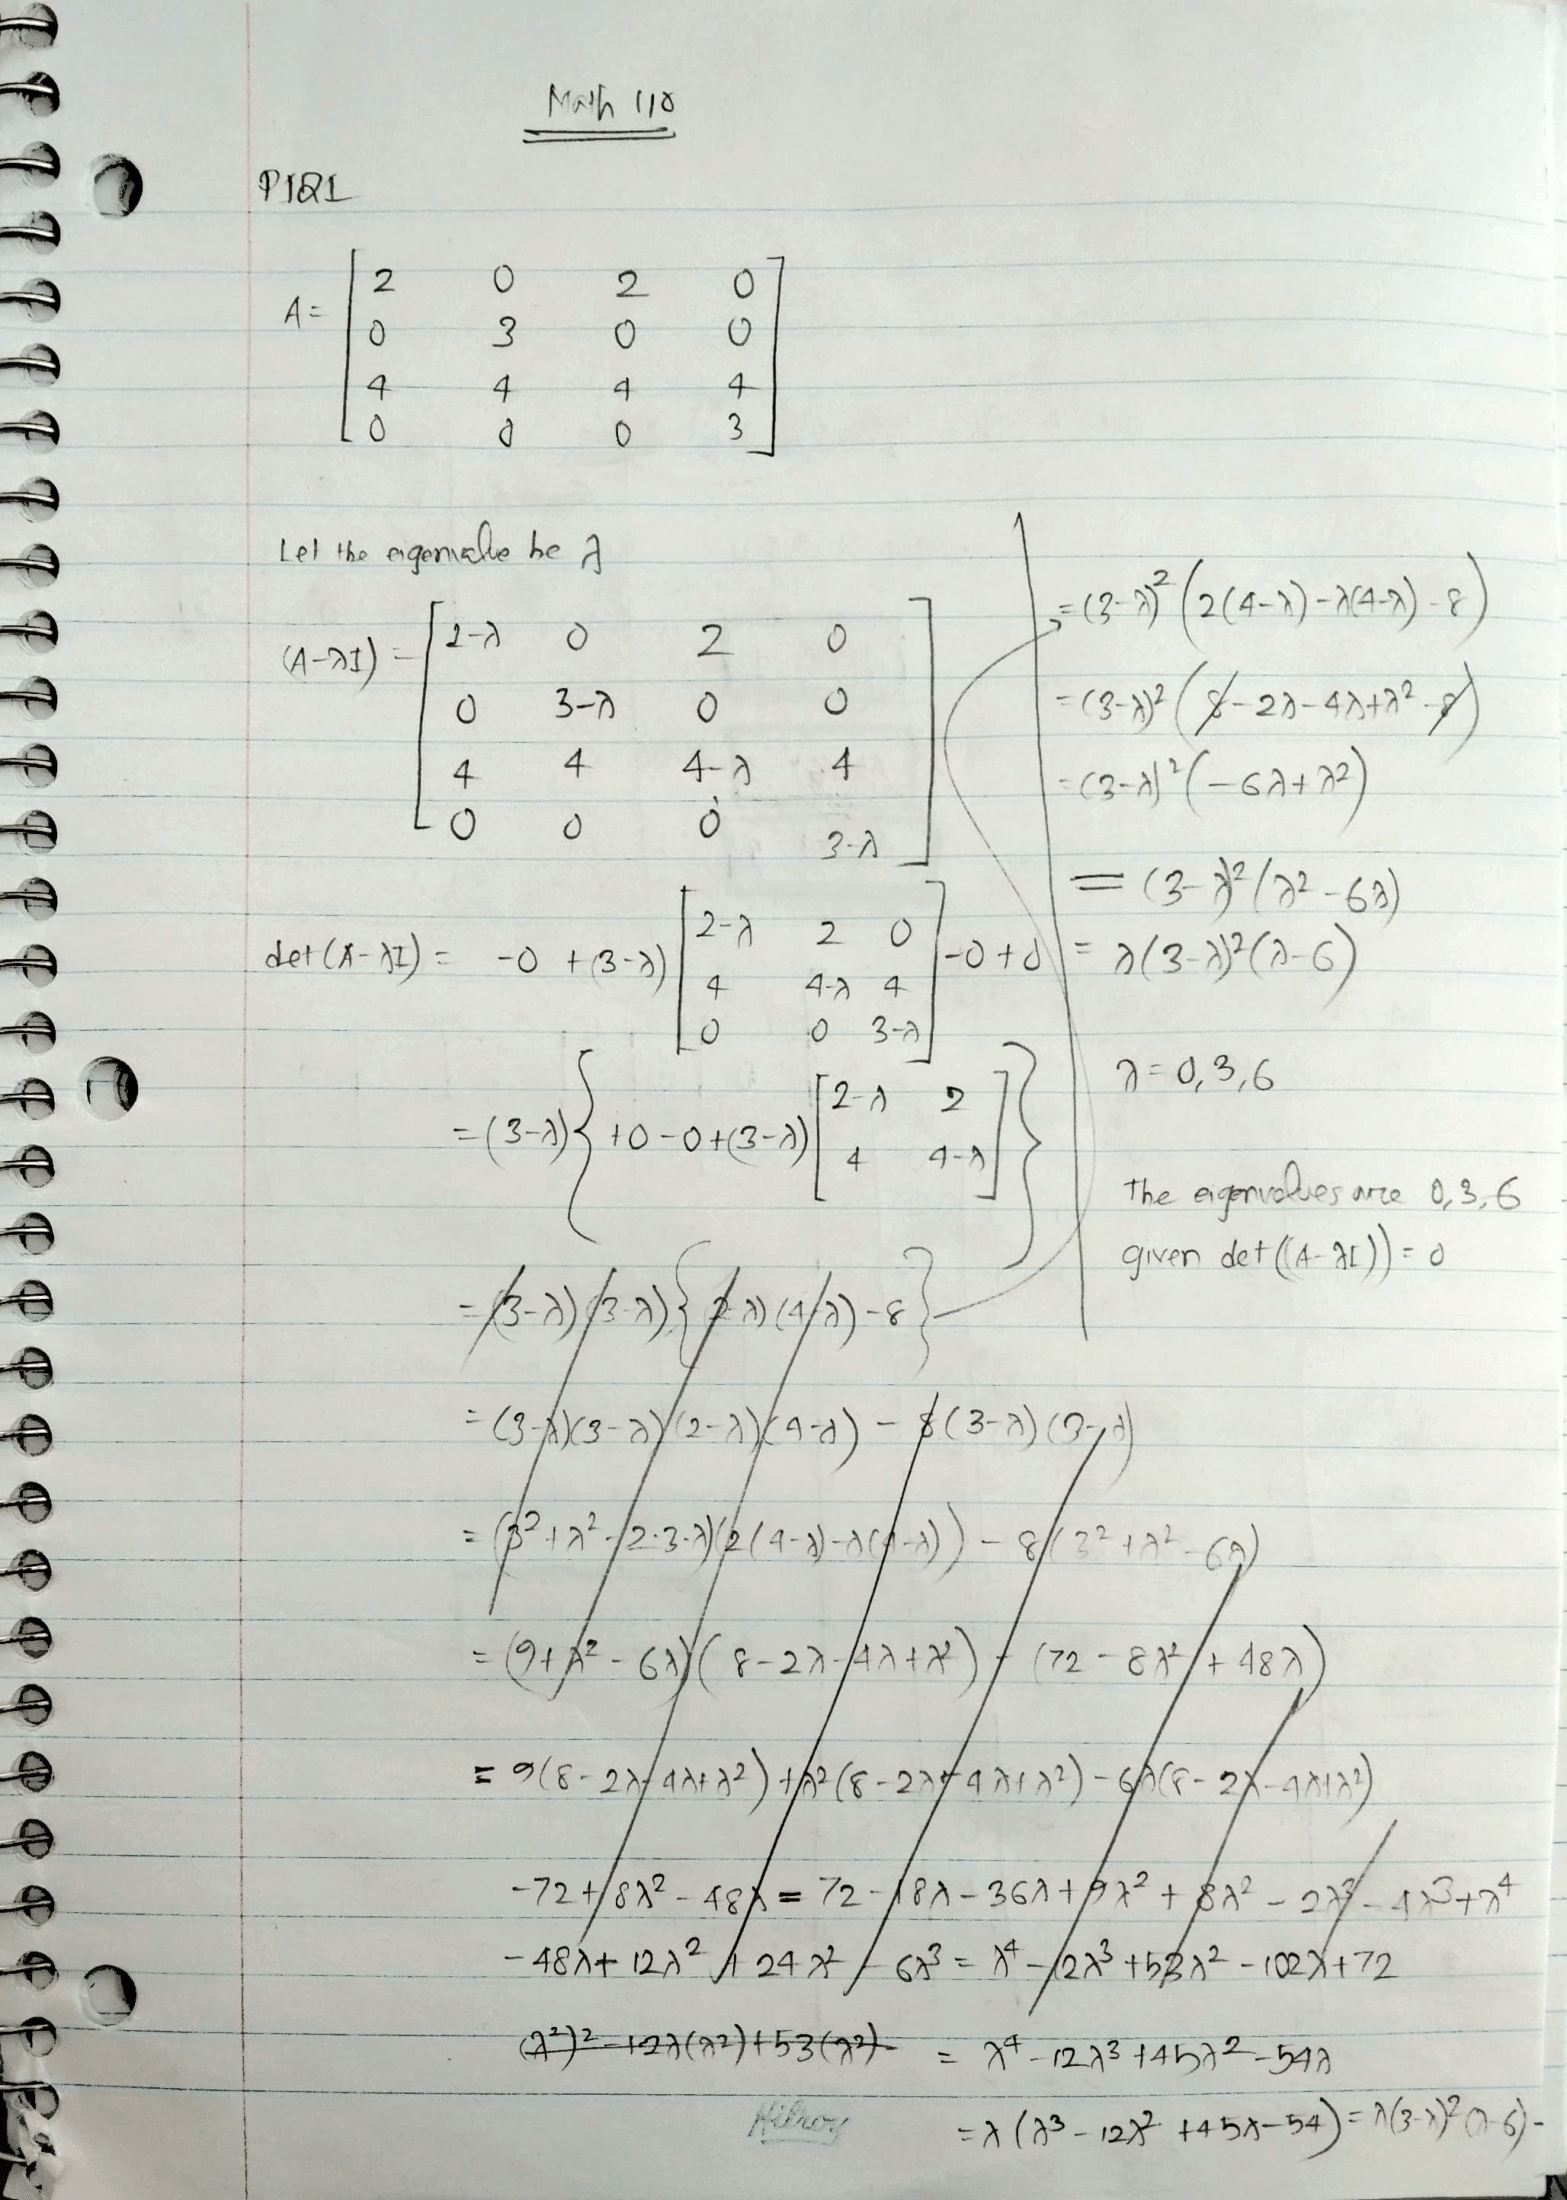 Math 110
P1Q1
A = [2 0 2 0
0 3 0 0
4 4 4 4
0 0 0 3]
Let the eigenvalue be λ
(A-λI) = [2-λ 0 2 0
0 3-λ 0 0
4 4 4-λ 4
0 0 0 3-λ]
det(A-λI) = -0 + (3-λ) [2-λ 2 0
4 4-λ 4
0 0 3-λ] -0+0
= (3-λ) { +0-0+(3-λ) [2-λ 2
4 4-λ] }
= (3-λ)(3-λ) { (2-λ)(4-λ) -8 }
= (3-λ)(3-λ)(2-λ)(4-λ) - 8(3-λ)(3-λ)
= (3²+λ²-2·3·λ)(2(4-λ)-λ(4-λ)) - 8(3²+λ²-6λ)
= (9+λ²-6λ)(8-2λ-4λ+λ²) - (72-8λ²+48λ)
= 9(8-2λ-4λ+λ²)+λ²(8-2λ-4λ+λ²)-6λ(8-2λ-4λ+λ²)
-72+8λ²-48λ = 72-18λ-36λ+9λ²+8λ²-2λ³-4λ³+λ⁴
-48λ+12λ²+24λ²-6λ³ = λ⁴-12λ³+53λ²-102λ+72
(λ²)²-12λ(λ²)+53(λ²)- = λ⁴-12λ³+45λ²-54λ
= λ(λ³-12λ²+45λ-54) = λ(3-λ)²(λ-6)-
= (3-λ)²(2(4-λ)-λ(4-λ)-8)
= (3-λ)²(8-2λ-4λ+λ²-8)
= (3-λ)²(-6λ+λ²)
= (3-λ)²(λ²-6λ)
= λ(3-λ)²(λ-6)
λ=0,3,6
The eigenvalues are 0,3,6
given det((A-λI))=0
Hilroy